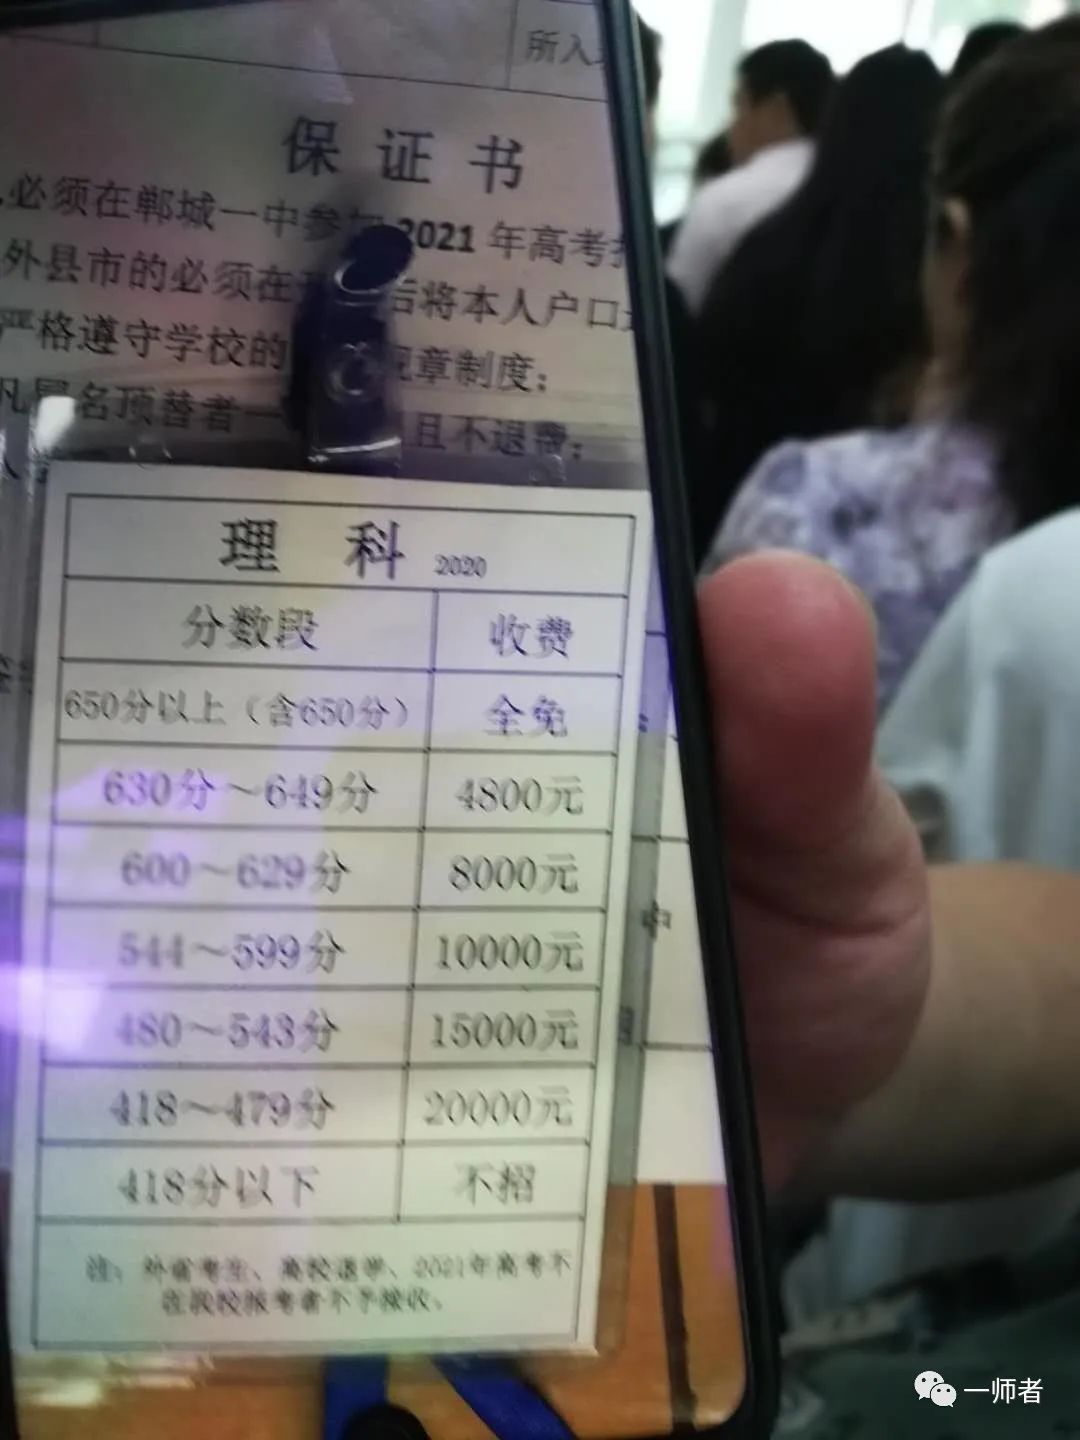 所入
保 证 书
必须在郸城一中参加 2021 年高考
外县市的必须在 后将本人户口
严格遵守学校的 规章制度;
凡冒名顶替者一 且不退费;
理 科 2020
分数段 收费
650分以上（含650分） 全免
630分～649分 4800元
600～629分 8000元
544～599分 10000元
480～543分 15000元
418～479分 20000元
418分以下 不招
注：外省考生、高校退学、2021年高考不
在我校报考者不予接收。
中
一师者